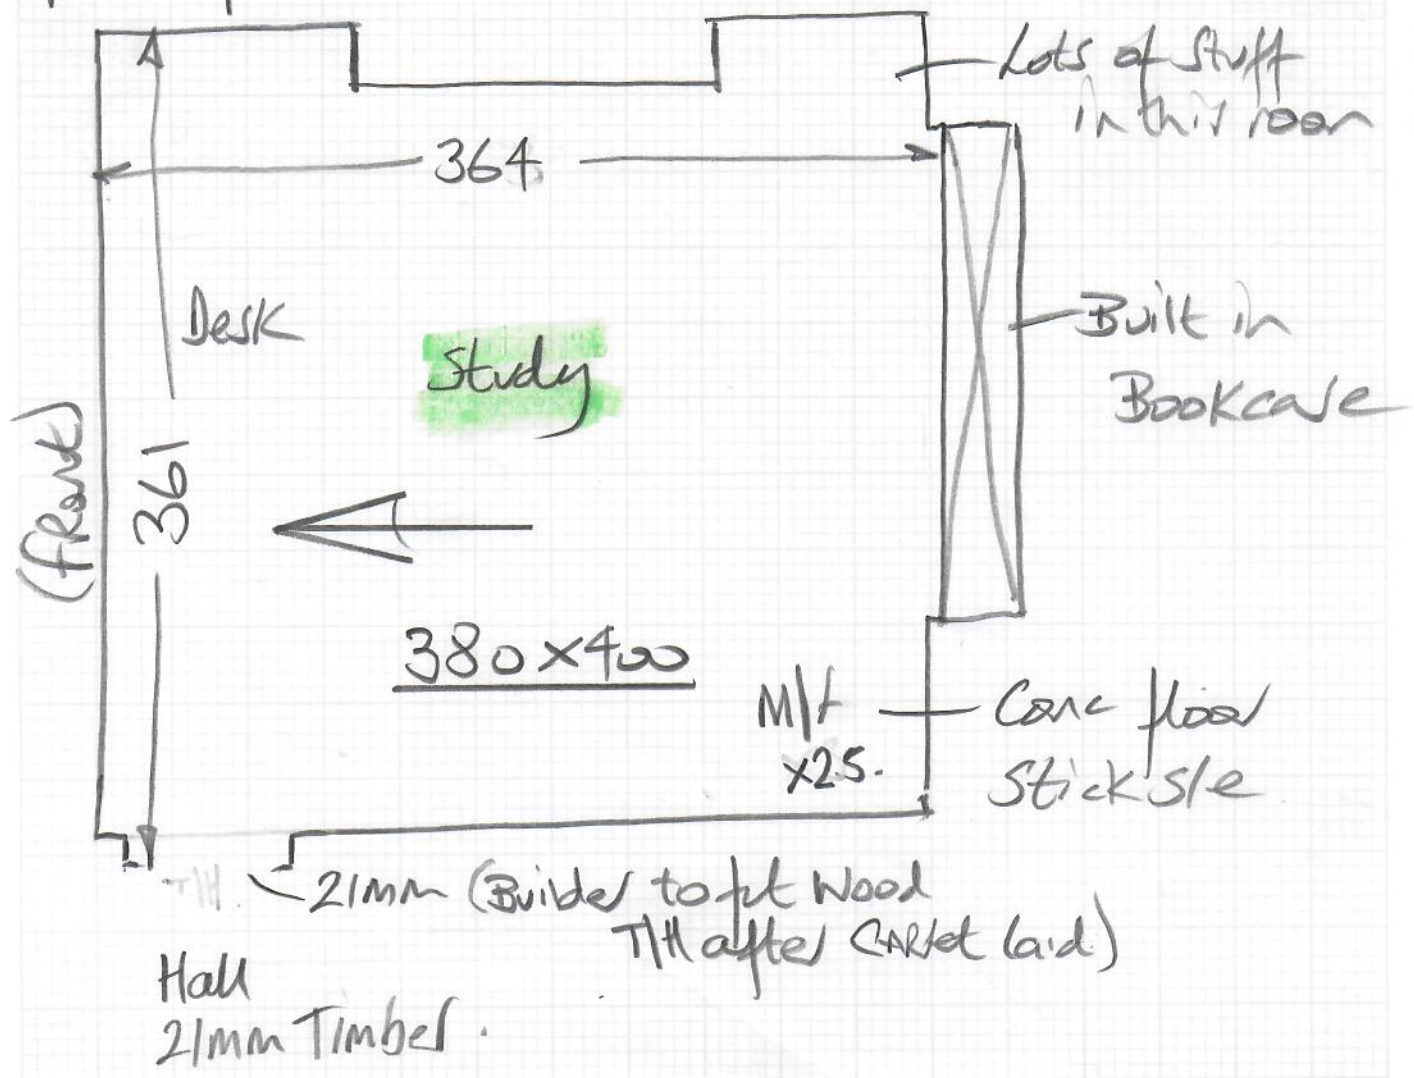 Lots of Stuff
in this room
364
Desk
Study
Built in
Bookcase
(front)
361
380x400
M/t
x25.
Conc floor
Stick S/e
T/H
21mm (Builder to fit Wood
T/H after CARPet laid)
Hall
21mm Timber.